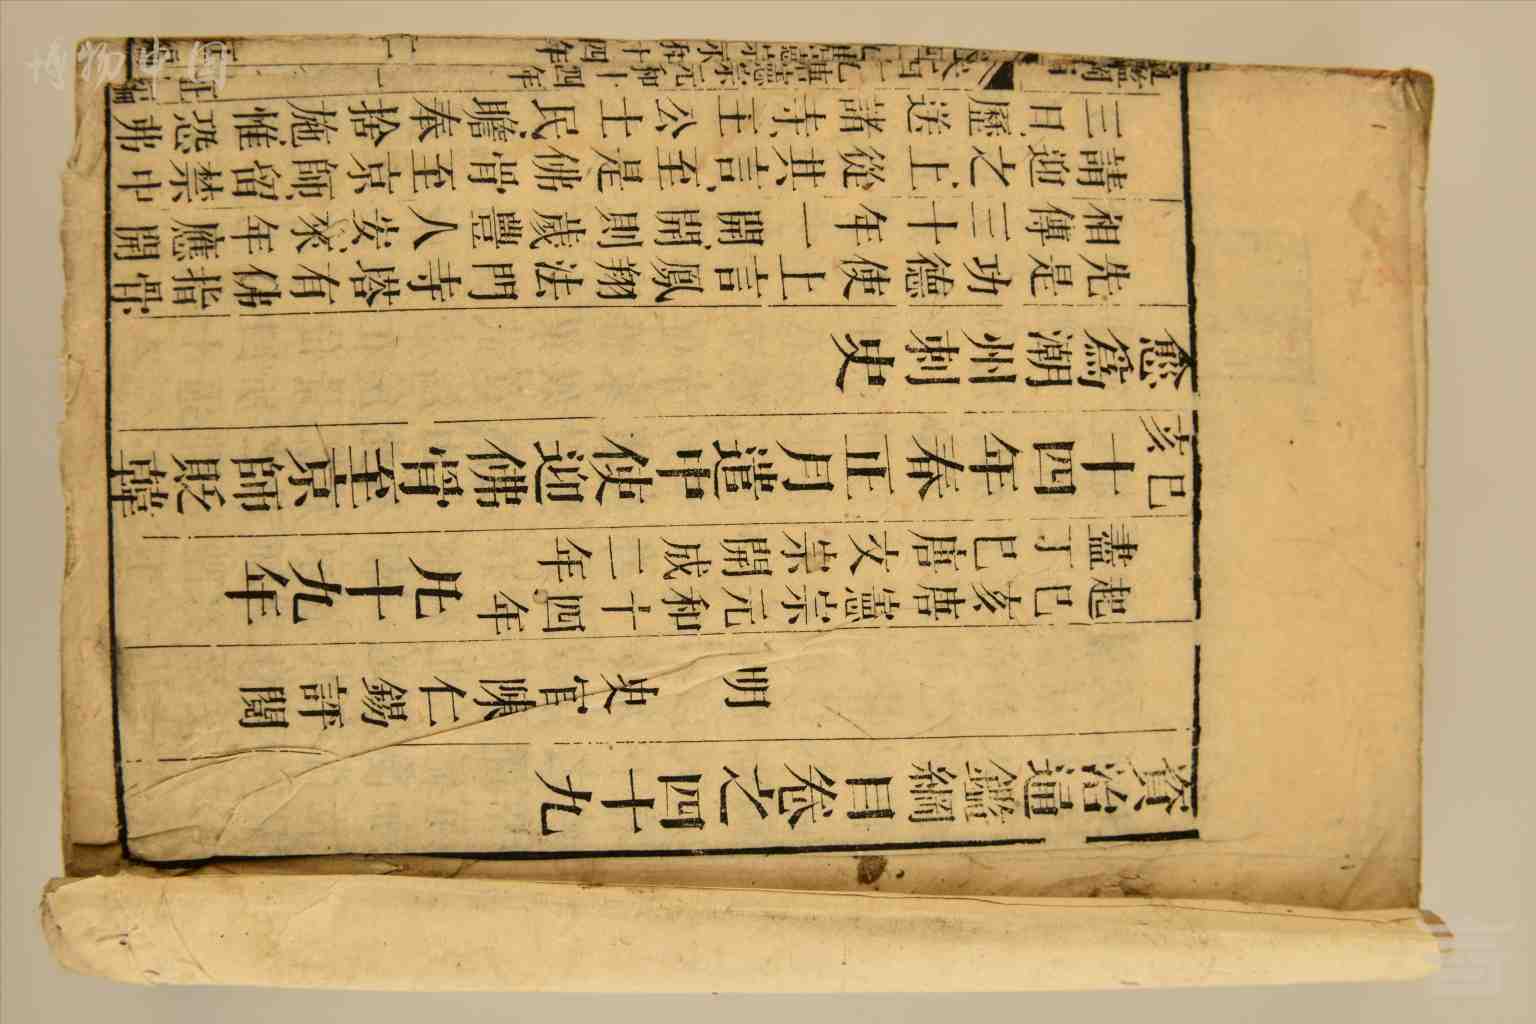 資治通鑑綱目卷之四十九
明 史官陳仁錫評閱
起己亥唐憲宗元和十四年
盡丁巳唐文宗開成二年
凡十九年
己亥十四年春正月遣中使迎佛骨至京師貶韓
愈爲潮州刺史
先是功德使上言鳳翔法門寺塔有佛指骨
相傳三十年一開開則歲豐人安來年應開
請迎之上從其言至是佛骨至京師留禁中
三日歷送諸寺王公士民瞻奉捨施惟恐弗
唐憲宗元和十四年 一 正編
博物中国